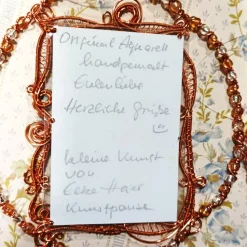 Original Aquarell
handgemalt
Eulenliebe
Herzliche Grüße
kleine Kunst
von
Kunstpause